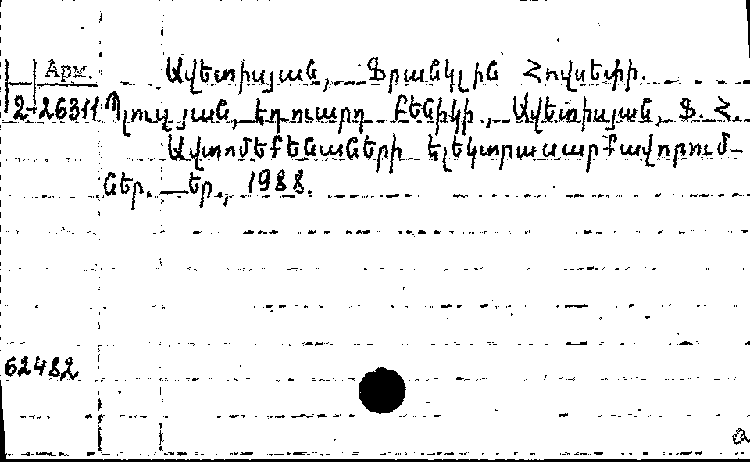 Арм. Ավետիսյան, Ֆրանկլին Հովսեփի.
2-26311 Պլուզյան, Էդուարդ Բենիկի., Ավետիսյան, Ֆ. Հ.
Ավտոմեքենաների էլեկտրասարքավորում-
ներ. _ Եր., 1988.
62482